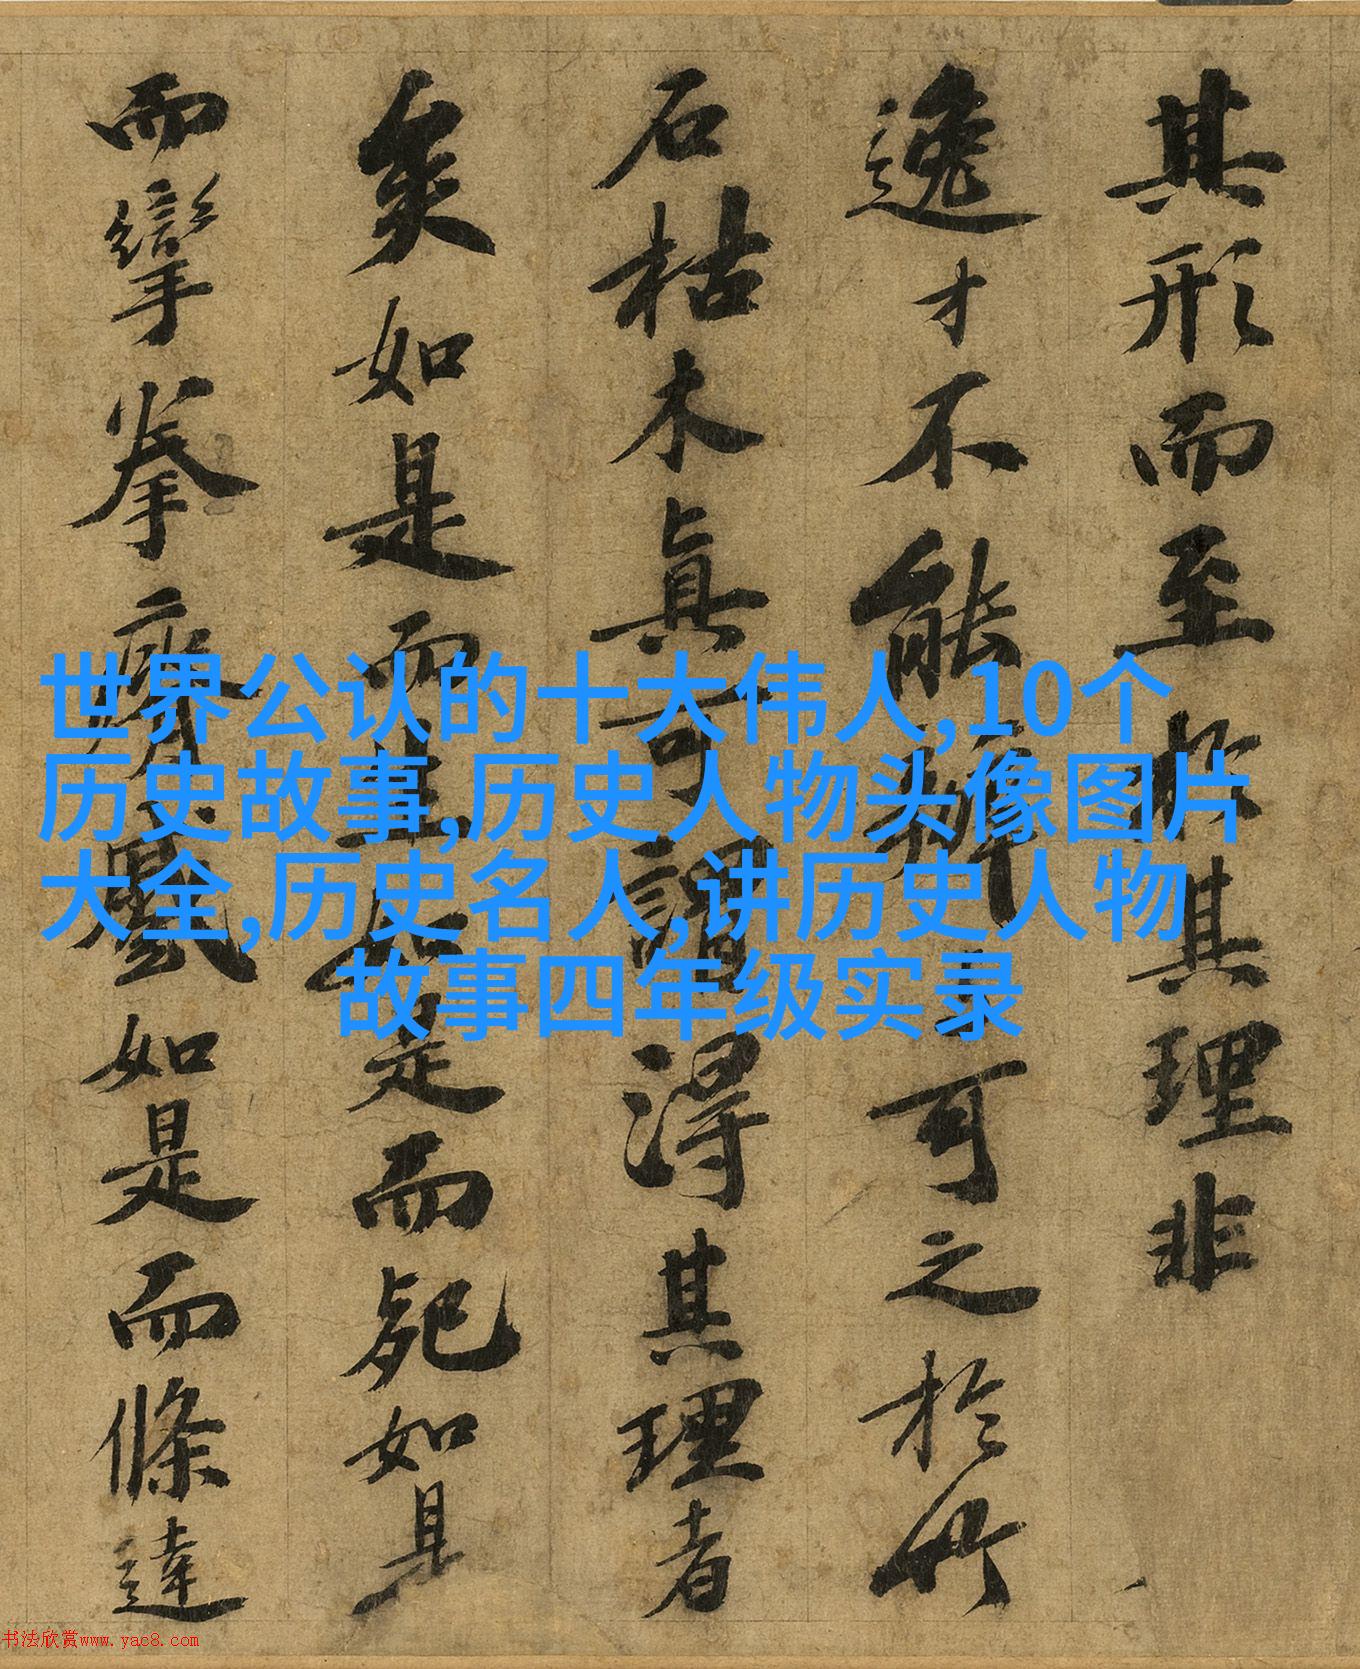 其形而至於其理非
逸才不能辨可之於竹
石枯木真可謂得其理者
矣如是而生如是而死如是
而攣拳瘠蹙如是而條達
世界公认的十大伟人,10个
历史故事,历史人物头像图片
大全,历史名人,讲历史人物
故事四年级实录
书法欣赏www.yac8.com